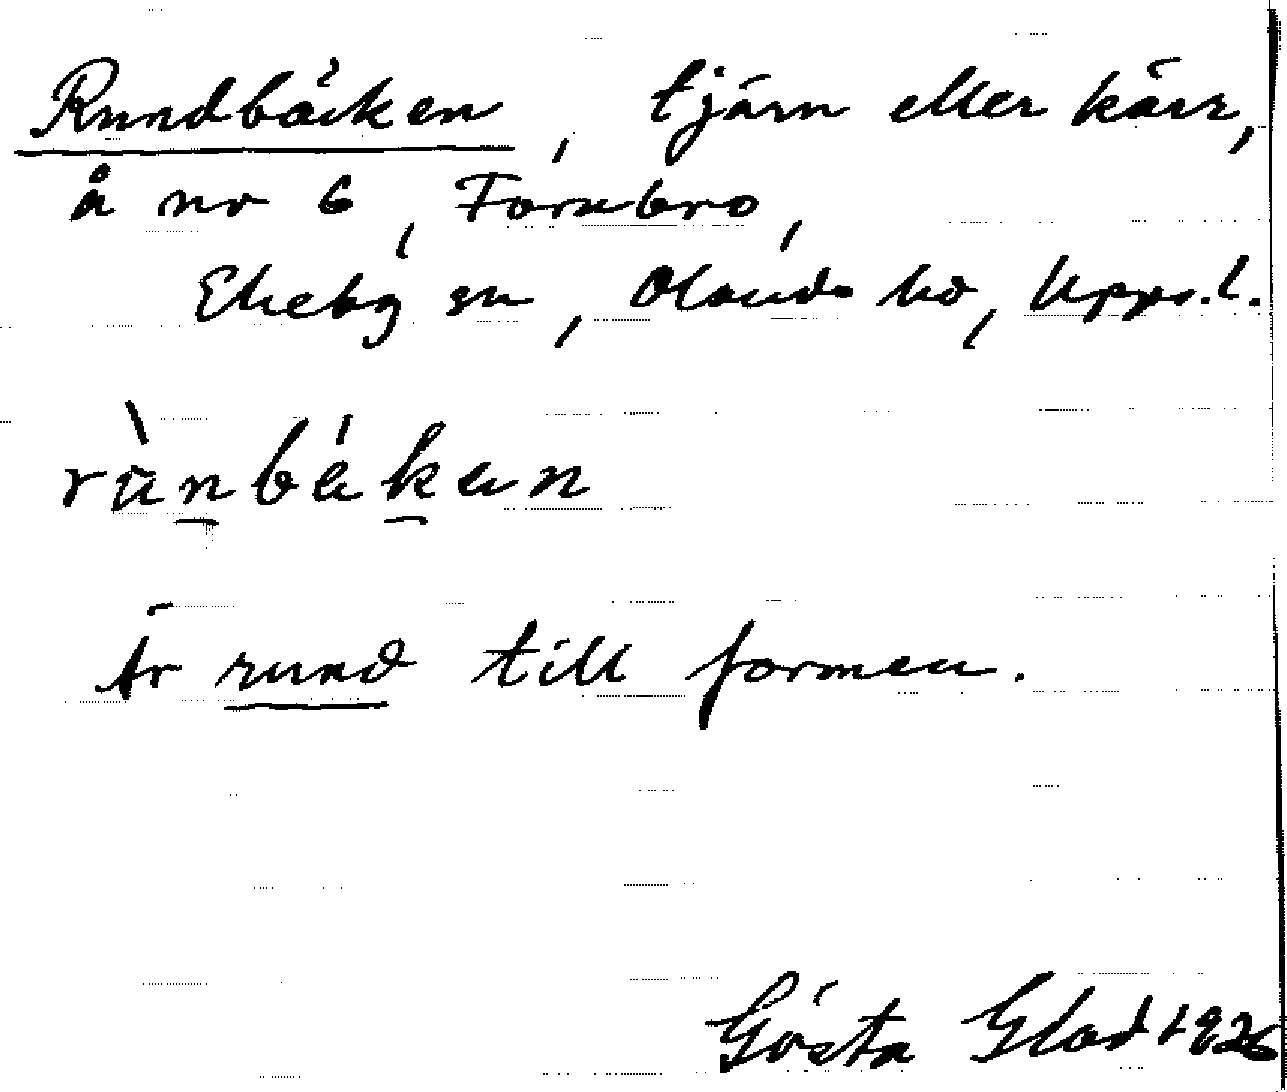 Rundbäcken, tjärn eller kärr,
å nr 6, Fornbro,
Ekeby sn, Olands hd, Upps.l.
Är rund till formen.
Gösta Glad 1926